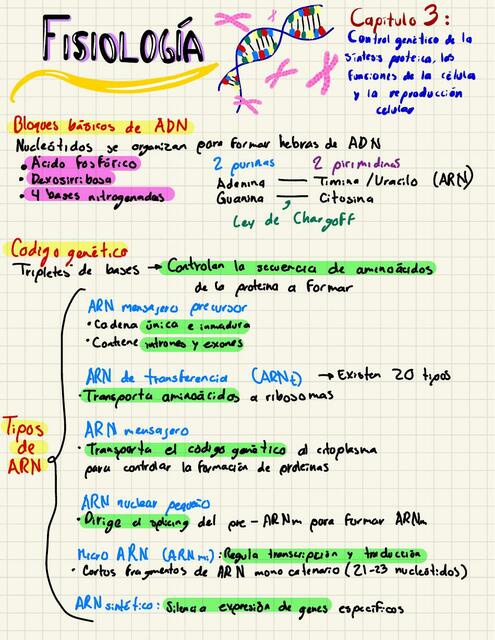 FISIOLOGÍA
Capitulo 3:
Control genético de la
síntesis proteica, las
funciones de la célula
y la reproducción
celular
Bloques básicos de ADN
Nucleótidos se organizan para formar hebras de ADN
• Ácido fosfórico
• Dexosirribosa
• 4 bases nitrogenadas
2 purinas 2 pirimidinas
Adenina — Timina /Uracilo (ARN)
Guanina = Citosina
Ley de Chargoff
Codigo genético
Tripletes de bases → Controlan la secuencia de aminoácidos
de la proteina a formar
Tipos
de
ARN
ARN mensajero precursor
• Cadena única e inmadura
• Contiene intrones y exones
ARN de transferencia (ARNt) → Existen 20 tipos
• Transporta aminoácidos a ribosomas
ARN mensajero
• Transporta el código genético al citoplasma
para controlar la formación de proteinas
ARN nuclear pequeño
• Dirige el splicing del pre-ARNm para formar ARNm
Micro ARN (ARNmi): Regula transcripción y traducción
• Cortos fragmentos de ARN mono catenario (21-23 nucleótidos)
ARN sintético: Silencia expresión de genes específicos